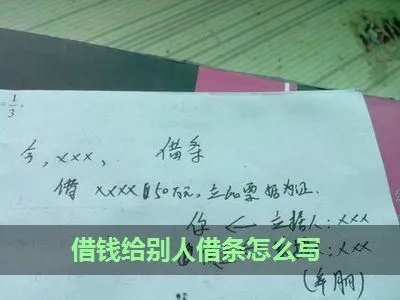 =1/3.
今,xxx, 借条
借 xxxx 50万元,立此票据为证.
你 ← 立据人:xxx
人:xxx
借钱给别人借条怎么写
(年月日)